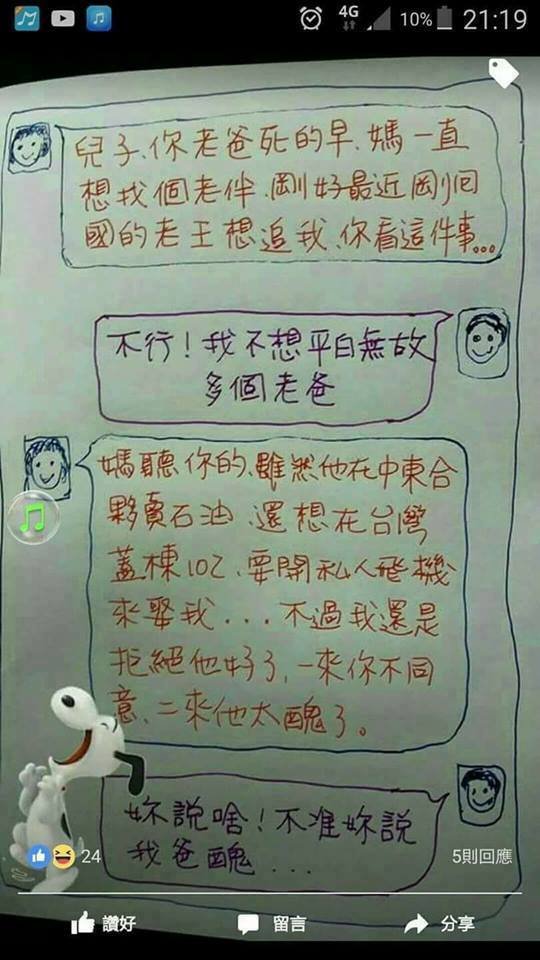 4G
10%
21:19
兒子、你老爸死的早、媽一直
想找個老伴、剛好最近剛回
國的老王想追我、你看這件事...
不行！我不想平白無故
多個老爸
媽聽你的、雖然他在中東合
夥賣石油、還想在台灣
蓋棟102、要開私人飛機
來娶我...不過我還是
拒絕他好了、一來你不同
意、二來他太醜了。
妳說啥！不准妳說
我爸醜...
24
5則回應
讚好
留言
分享